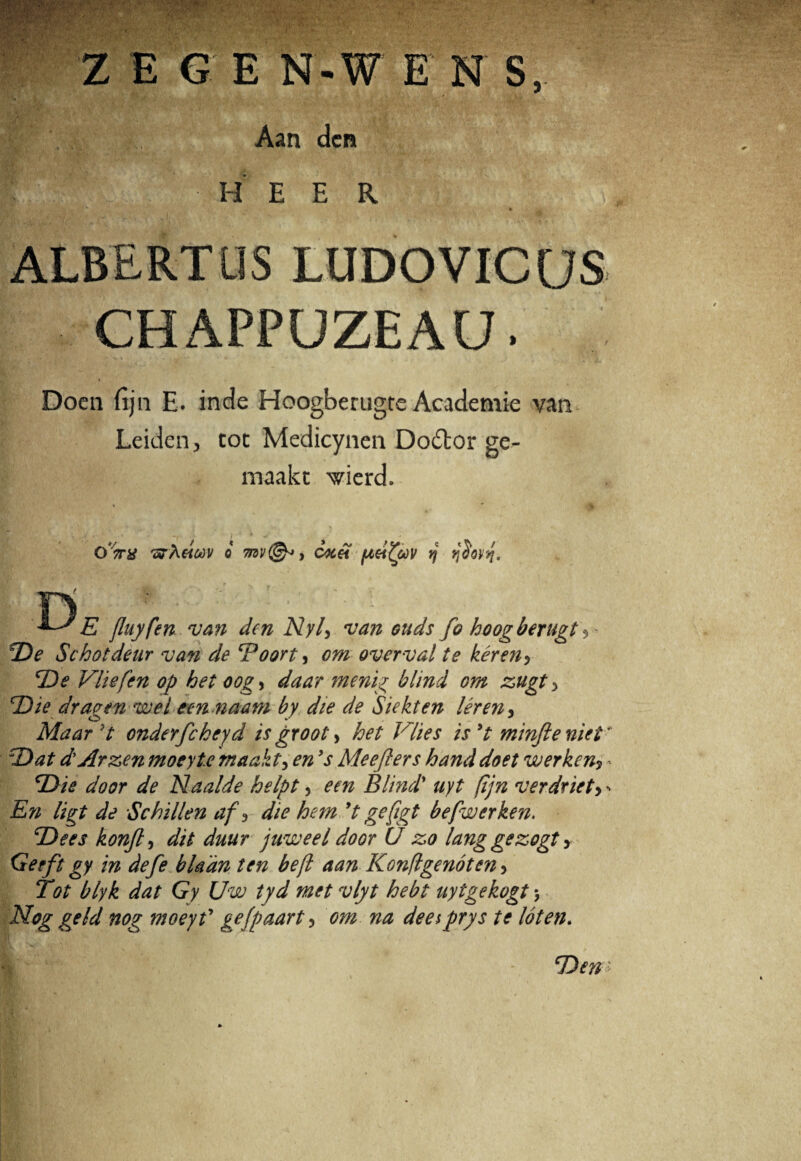 ZEGEN-WENS,
Aan den
HEER
ALBERTUS LUDOVICUS
CHAPPUZEAU.
Doen ſijn E. inde Hoogberugte Academie van
Leiden, tot Medicynen Doctor ge-
maakt wierd.
Ὅπȣ πλείων ὁ πόν@, ἐκεῖ μείζων ἡ ἡδονή.
DE ſluyſen van den Nyl, van ouds ſo hoog berugt,
De Schotdeur van de Poort, om overval te kéren,
De Vlieſen op het oog, daar menig blind om zugt,
Die dragen wel een naam by die de Siekten léren,
Maar 't onderſcheyd is groot, het Vlies is 't minſte niet
Dat d'Arzen moeyte maakt, en 's Meeſters hand doet werken,
Die door de Naalde helpt, een Blind' uyt ſijn verdriet,
En ligt de Schillen af, die hem 't geſigt beſwerken.
Dees konſt, dit duur juweel door U zo lang gezogt,
Geeft gy in deſe blaân ten beſt aan Konſtgenóten,
Tot blyk dat Gy Uw tyd met vlyt hebt uytgekogt;
Nog geld nog moeyt' geſpaart, om na dees prys te lóten.
Den